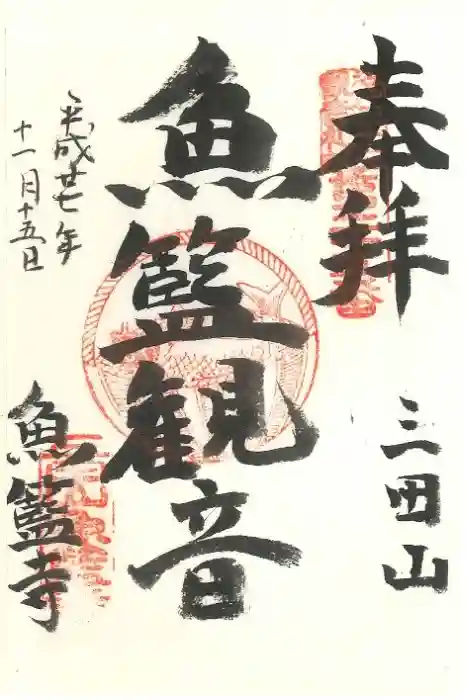 奉拝
三田山
魚籃観音
平成廿七年
十一月十五日
魚籃寺